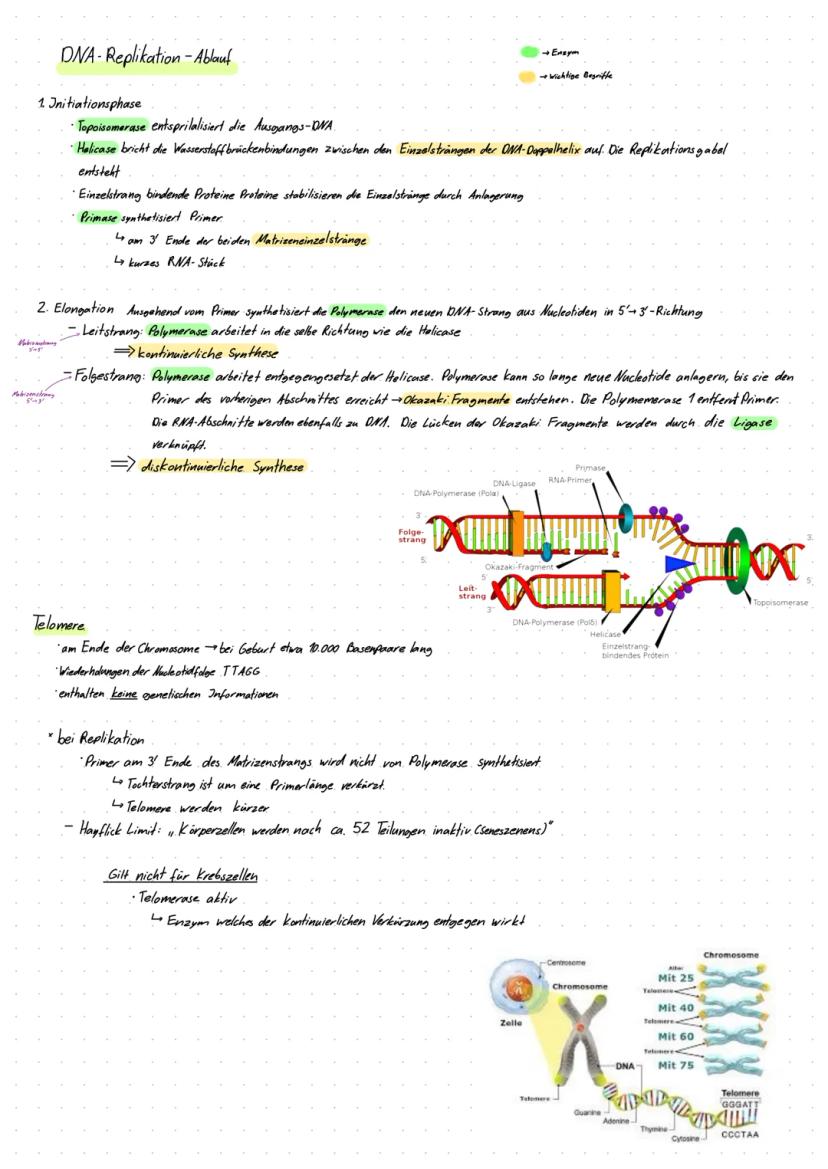 DNA-Replikation-Ablauf
→ Enzym
→ Wichtige Begriffe
1. Initiationsphase
· Topoisomerase entsprilalisiert die Ausgangs-DNA
· Helicase bricht die Wasserstoffbrückenbindungen zwischen den Einzelsträngen der DNA-Doppelhelix auf. Die Replikationsgabel
entsteht
· Einzelstrang bindende Proteine Proteine stabilisieren die Einzelstränge durch Anlagerung
· Primase synthetisiert Primer
↳ am 3' Ende der beiden Matrizeneinzelstränge
↳ kurzes RNA-Stück
2. Elongation Ausgehend vom Primer synthetisiert die Polymerase den neuen DNA-Strang aus Nucleotiden in 5'→3'-Richtung
– Leitstrang: Polymerase arbeitet in die selbe Richtung wie die Helicase
Matrizenstrang
3'→5'
⇒ kontinuierliche Synthese
– Folgestrang: Polymerase arbeitet entgegengesetzt der Helicase. Polymerase kann so lange neue Nucleotide anlagern, bis sie den
Matrizenstrang
5'→3'
Primer des vorherigen Abschnittes erreicht → Okazaki Fragmente entstehen. Die Polymemerase 1 entfernt Primer.
Die RNA-Abschnitte werden ebenfalls zu DNA. Die Lücken der Okazaki Fragmente werden durch die Ligase
verknüpft.
⇒ diskontinuierliche Synthese
Primase
DNA-Ligase
RNA-Primer
DNA-Polymerase (Polα)
3'
Folge-
strang
5'
Okazaki-Fragment
3'
5'
5'
Leit-
strang
3'
Topoisomerase
DNA-Polymerase (Polδ)
Helicase
Einzelstrang-
bindendes Protein
Telomere
· am Ende der Chromosome → bei Geburt etwa 10.000 Basenpaare lang
· Wiederholungen der Nucleotidfolge TTAGG
· enthalten keine genetischen Informationen
* bei Replikation
· Primer am 3' Ende des Matrizenstrangs wird nicht von Polymerase synthetisiert
↳ Tochterstrang ist um eine Primerlänge verkürzt.
↳ Telomere werden kürzer
– Hayflick Limit: „Körperzellen werden nach ca. 52 Teilungen inaktiv (Seneszenens)"
Gilt nicht für Krebszellen
· Telomerase aktiv
↳ Enzym welches der kontinuierlichen Verkürzung entgegen wirkt
Centrosome
Chromosome
Zelle
Telomere
DNA
Guanine
Adenine
Thymine
Cytosine
Chromosome
Alter
Mit 25
Telomere
Mit 40
Telomere
Mit 60
Telomere
Mit 75
Telomere
GGGATT
CCCTAA